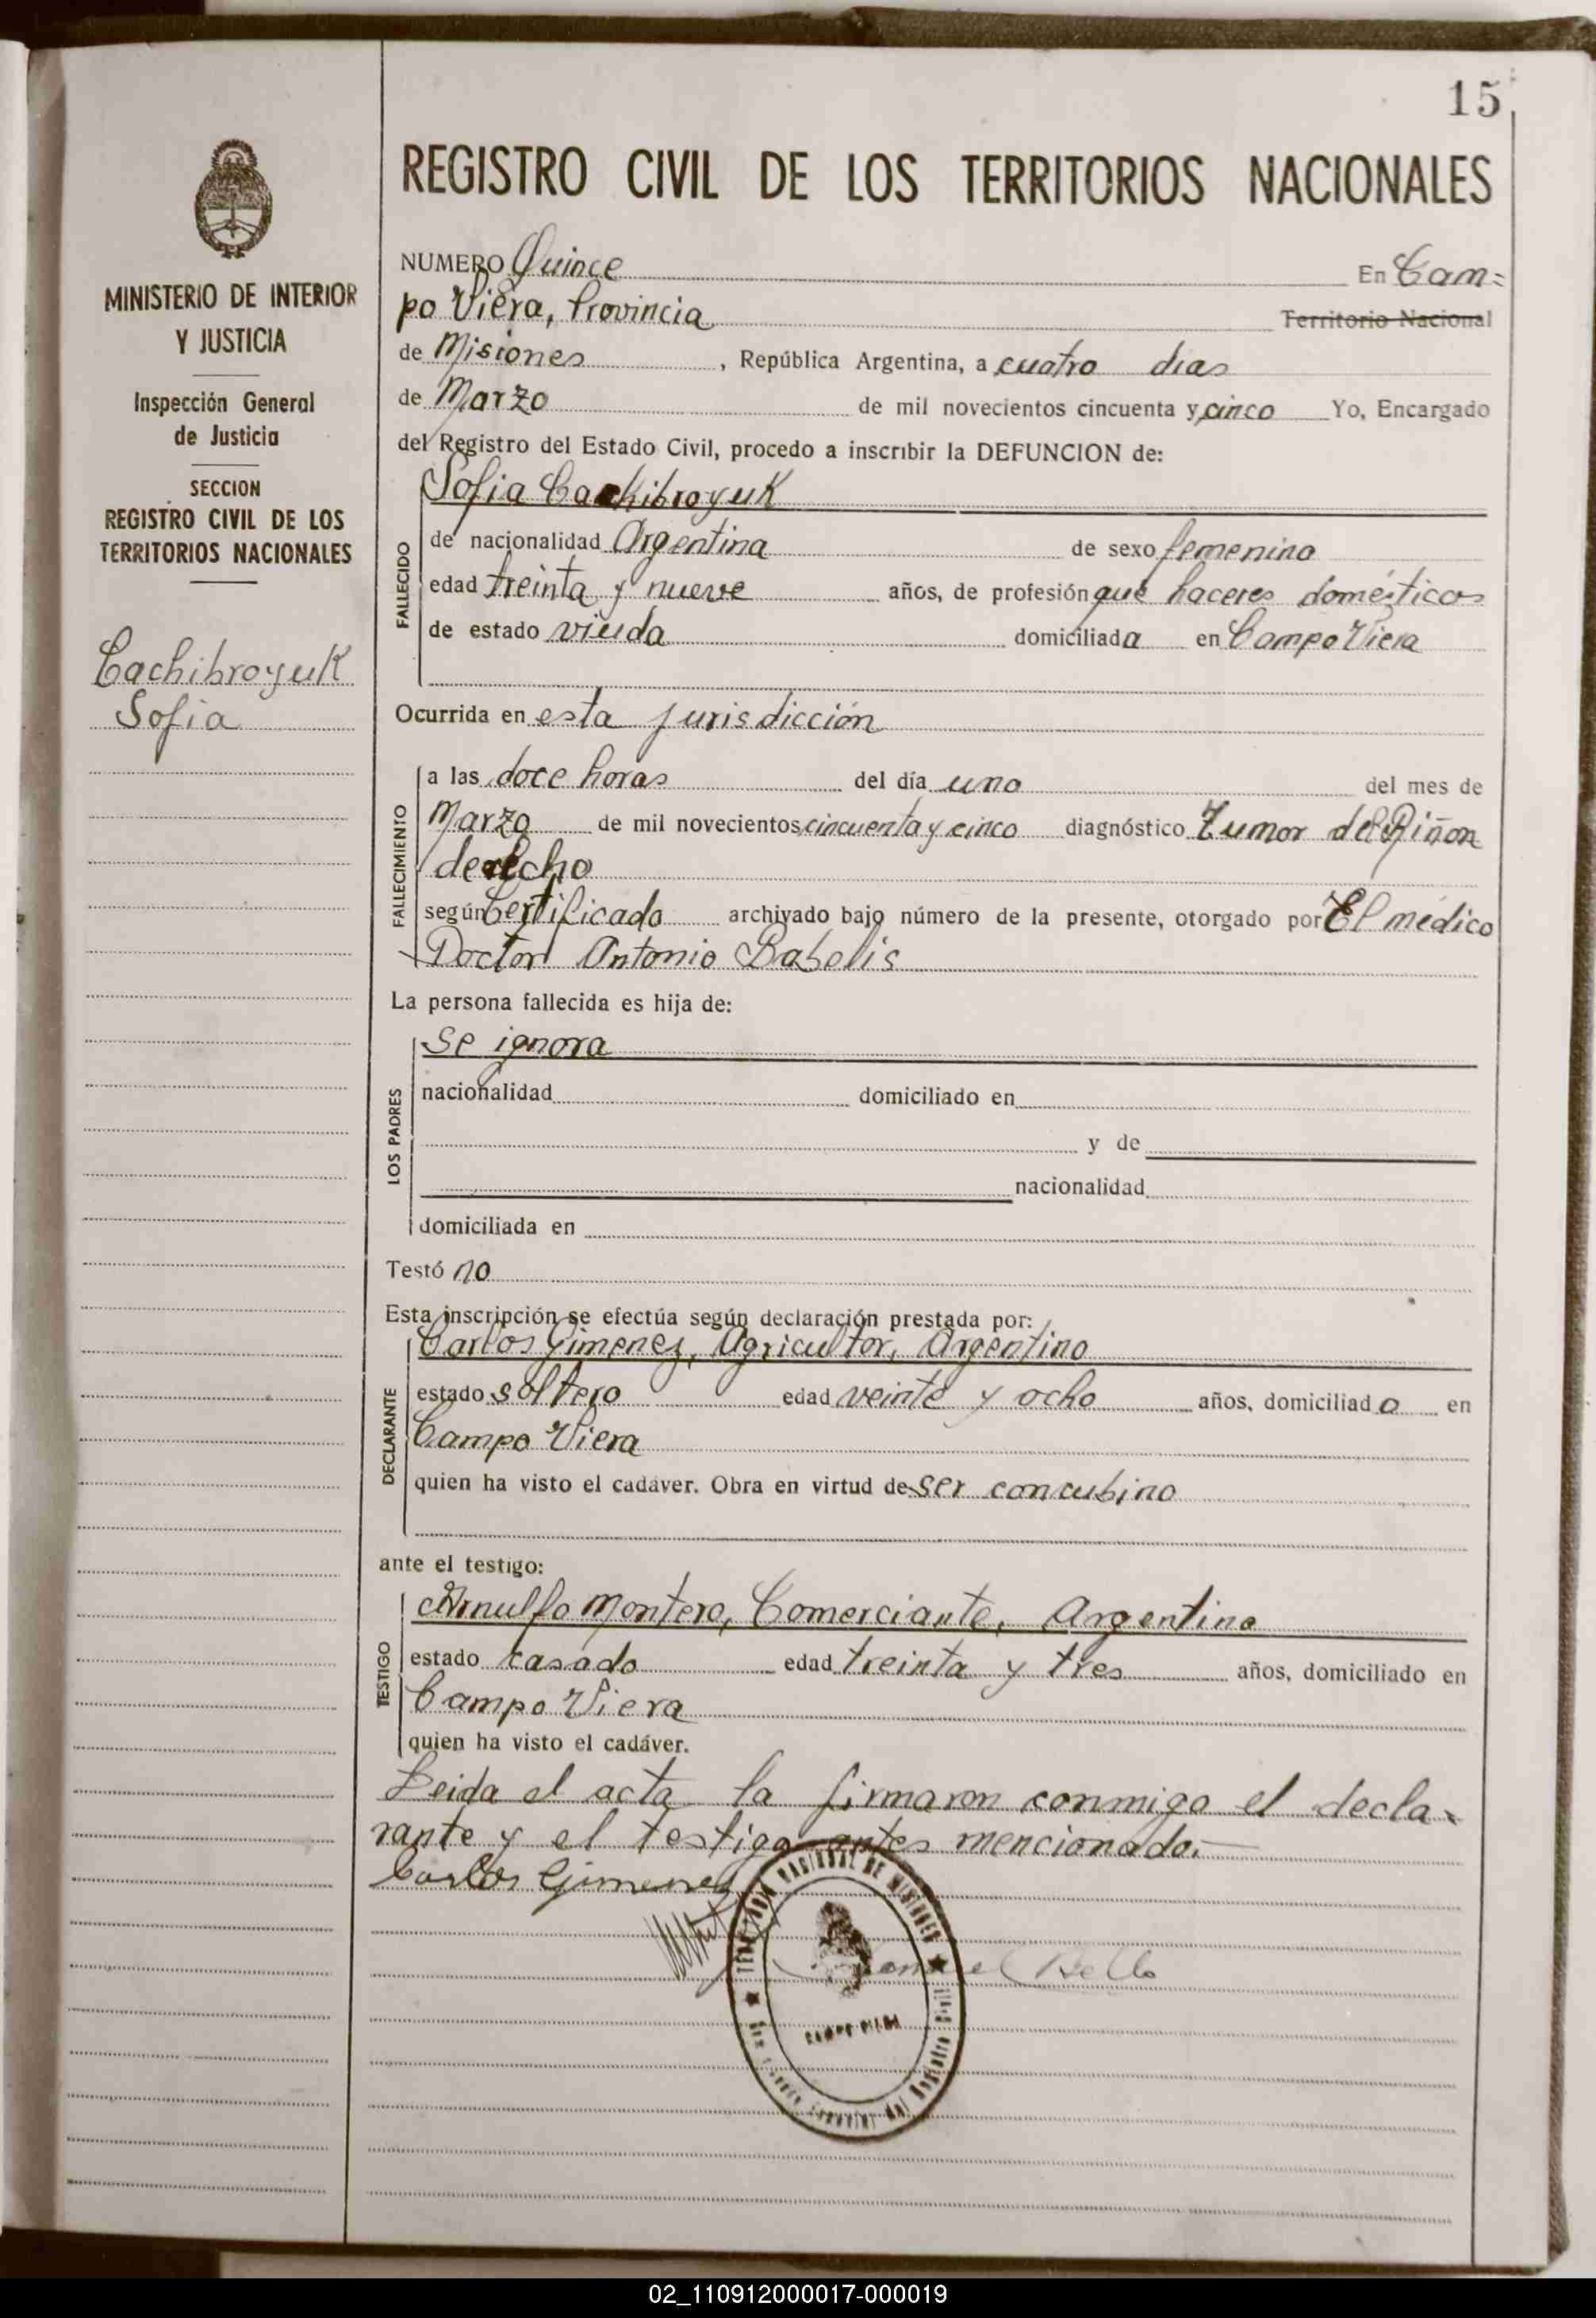 15
REGISTRO CIVIL DE LOS TERRITORIOS NACIONALES
MINISTERIO DE INTERIOR
Y JUSTICIA
Inspección General
de Justicia
SECCION
REGISTRO CIVIL DE LOS
TERRITORIOS NACIONALES
Cachibroyuk
Sofia
NUMERO Quince En Cam=
po Viera, Provincia Territorio Nacional
de Misiones, República Argentina, a cuatro dias
de Marzo de mil novecientos cincuenta y cinco Yo, Encargado
del Registro del Estado Civil, procedo a inscribir la DEFUNCION de:
Sofia Cachibroyuk
FALLECIDO
de nacionalidad Argentina de sexo femenino
edad treinta y nueve años, de profesión que haceres domésticos
de estado viuda domiciliada en Campo Viera
Ocurrida en esta jurisdicción
FALLECIMIENTO
a las doce horas del día uno del mes de
Marzo de mil novecientos cincuenta y cinco diagnóstico Tumor del Riñon
derecho
según Certificado archivado bajo número de la presente, otorgado por El médico
Doctor Antonio Babelis
La persona fallecida es hija de:
LOS PADRES
se ignora
nacionalidad domiciliado en
y de
nacionalidad
domiciliada en
Testó no
Esta inscripción se efectúa según declaración prestada por:
DECLARANTE
Carlos Gimenez, Agricultor, Argentino
estado soltero edad veinte y ocho años, domiciliado en
Campo Viera
quien ha visto el cadáver. Obra en virtud de ser concubino
ante el testigo:
TESTIGO
Arnulfo Montero, Comerciante, Argentino
estado casado edad treinta y tres años, domiciliado en
Campo Viera
quien ha visto el cadáver.
Leida el acta la firmaron conmigo el decla=
rante y el testigo antes mencionado.
Carlos Gimenez
Bello
CAMPO VIERA
02_110912000017-000019